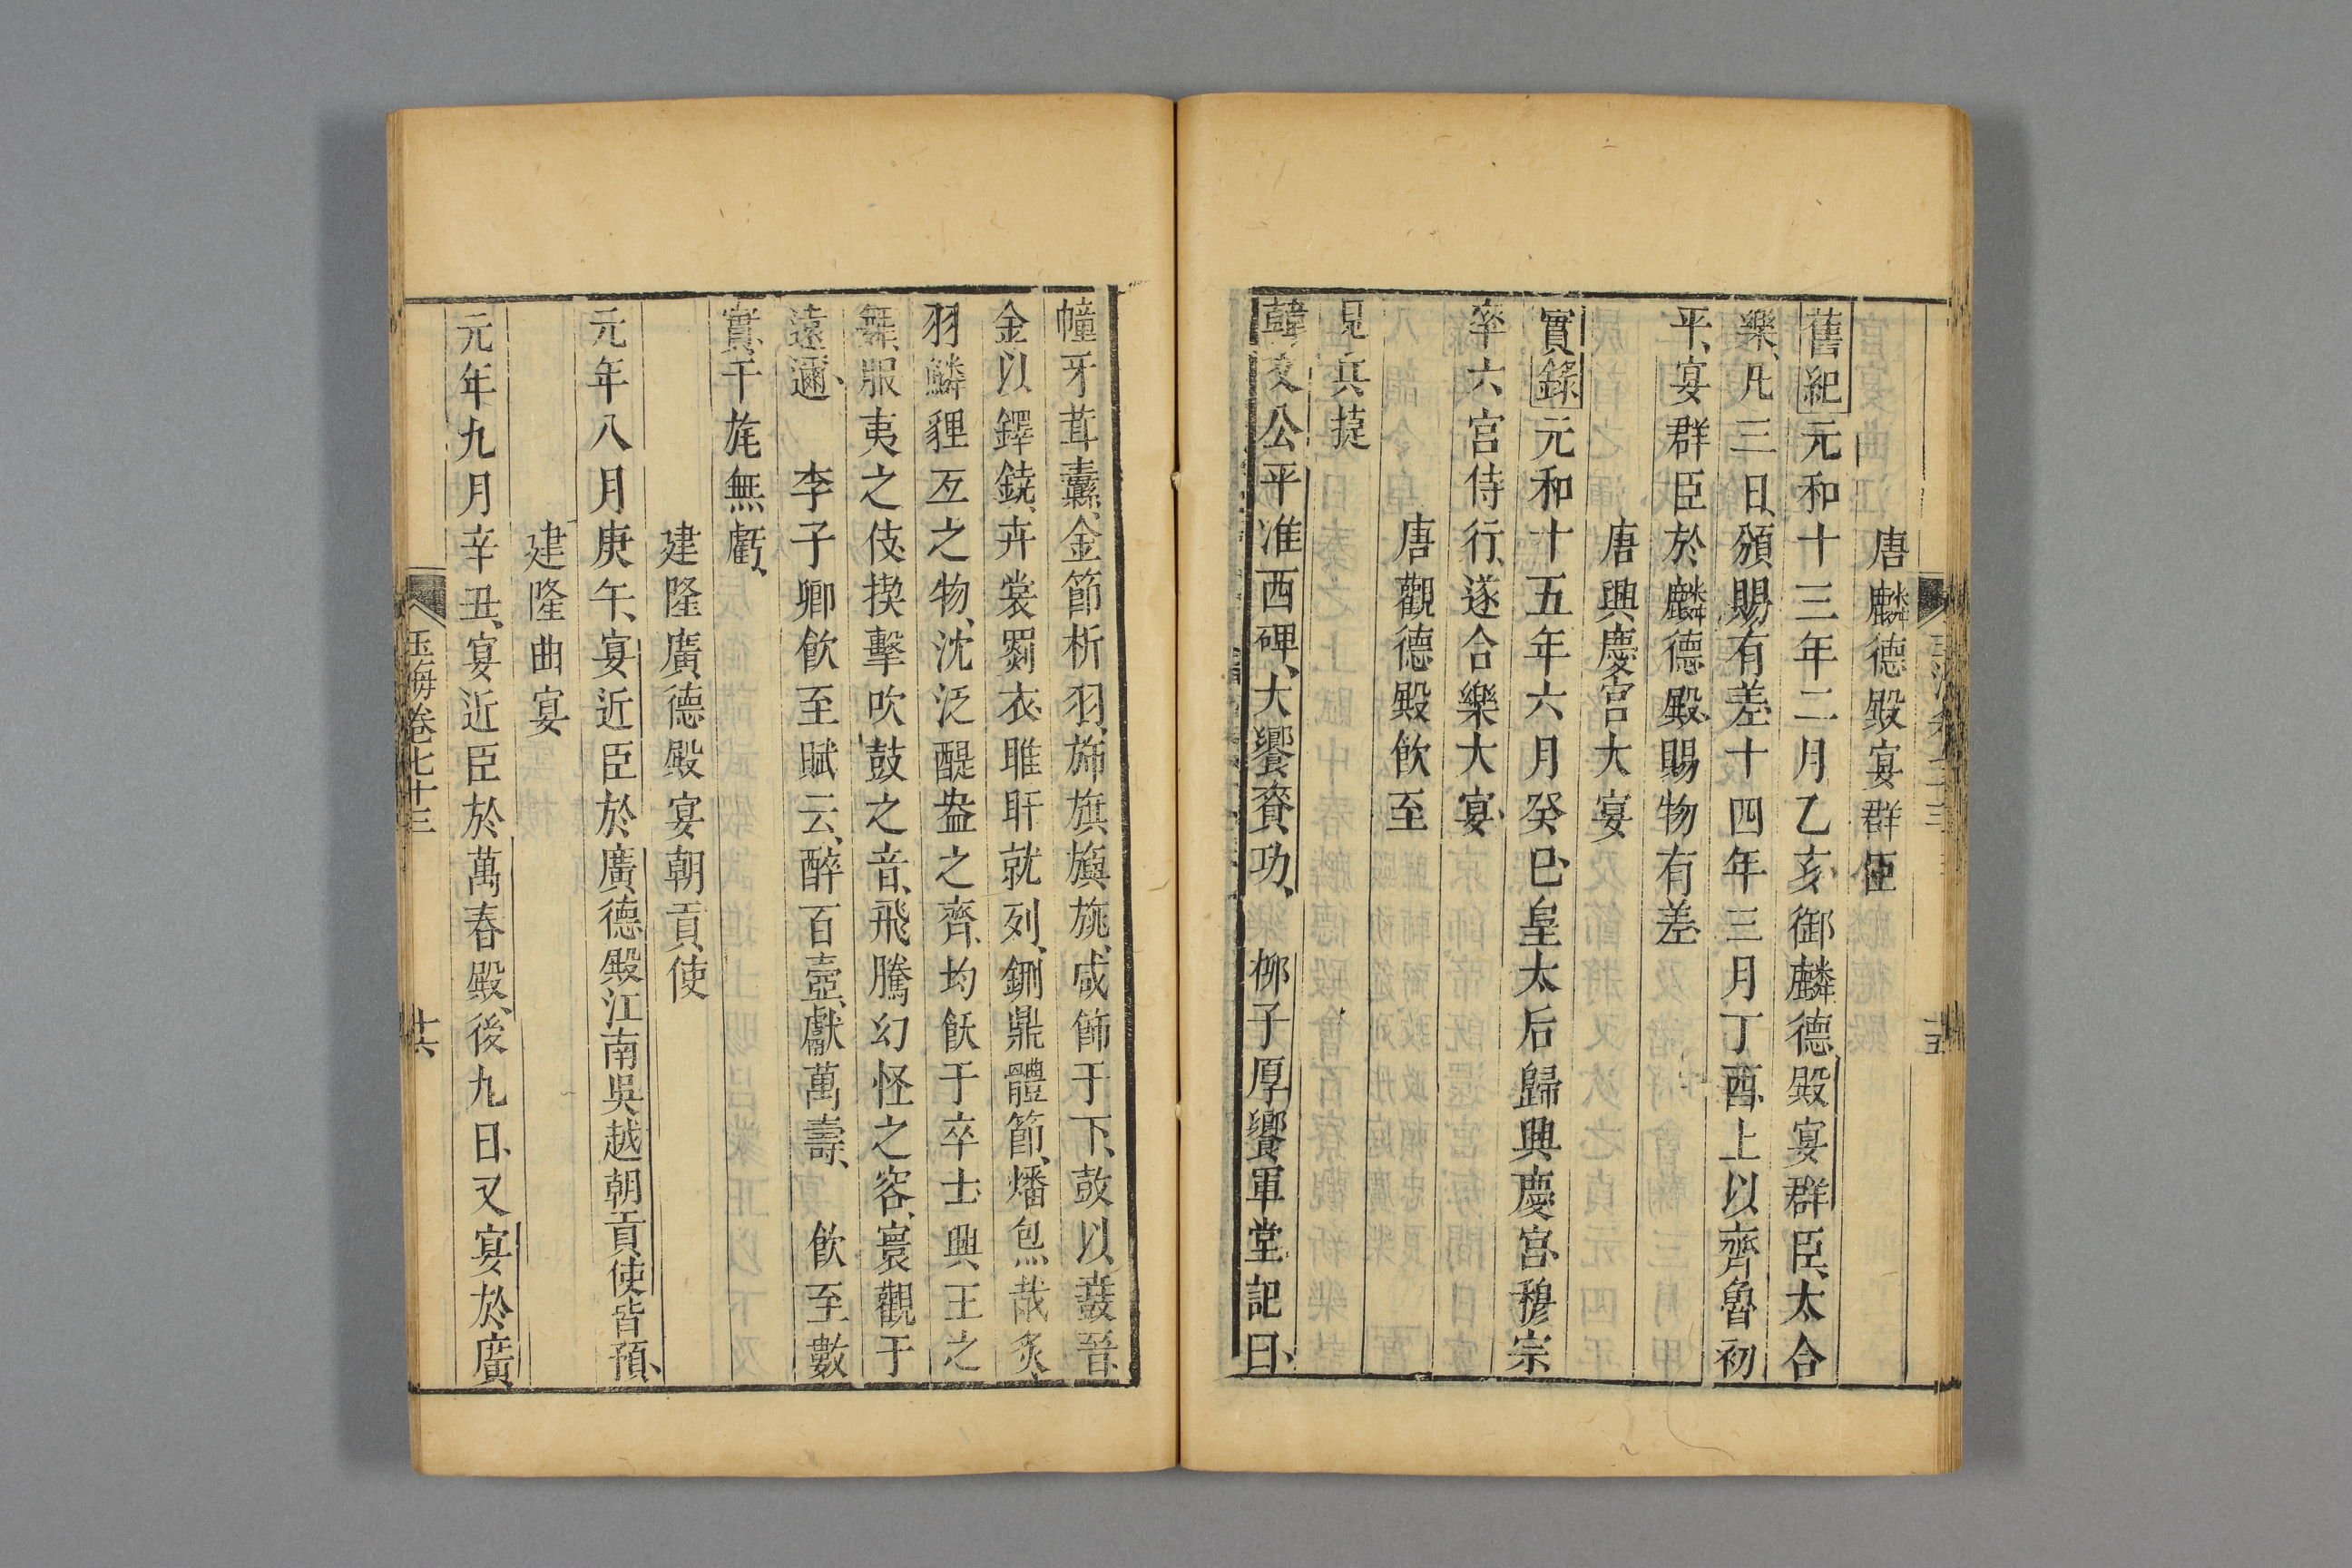 唐麟德殿宴群臣
舊紀元和十三年二月乙亥御麟德殿宴群臣、太合
樂、凡三日、頒賜有差、十四年三月丁酉、上以齊魯初
平、宴群臣於麟德殿、賜物有差、
唐興慶宮大宴
實錄元和十五年六月癸巳、皇太后歸興慶宮、穆宗
率六宮侍行、遂合樂大宴、
唐觀德殿飲至
見兵捷
韓文公平淮西碑、大饗賚功、 柳子厚饗軍堂記曰、
幢牙茸纛、金節析羽、旆旗旟旐、咸飾于下、鼓以鼖晉、
金以鐸鐃、卉裳罽衣、雎盱就列、鉶鼎體節、燔炰胾炙、
羽鱗貍互之物、沈泛醍盎之齊、均飫于卒士、興王之
舞、服夷之伎、揳擊吹鼓之音、飛騰幻怪之容、寰觀于
遠邇、 李子卿飲至賦云、醉百壺、獻萬壽、 飲至數
實、干旄無虧、
建隆廣德殿宴朝貢使
元年八月庚午、宴近臣於廣德殿江南吳越朝貢使皆預、
建隆曲宴
元年九月辛丑、宴近臣於萬春殿、後九日、又宴於廣
玉海卷七十三
十六